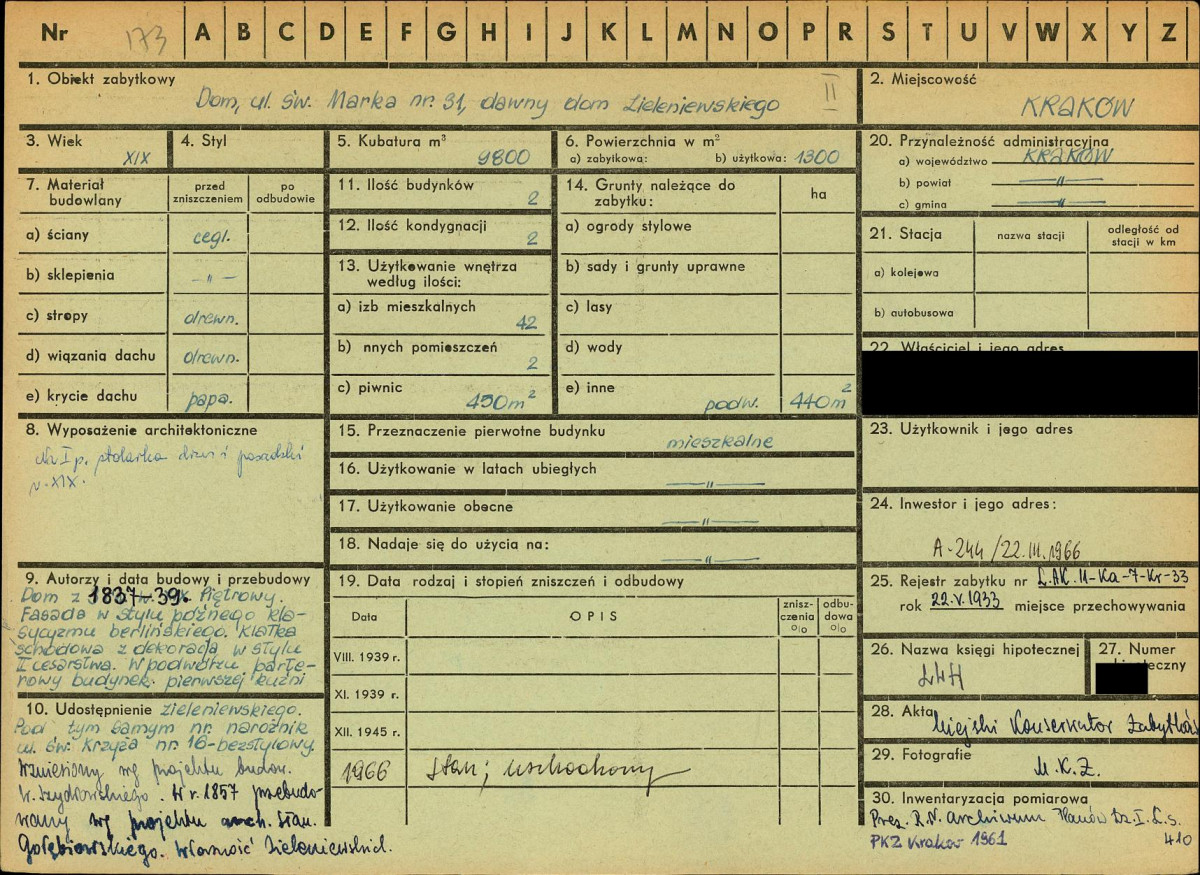 Nr 173 A B C D E F G H I J K L M N O P R S T U V W X Y Z
1. Obiekt zabytkowy
Dom, ul. św. Marka nr. 31, dawny dom Zieleniewskiego II
2. Miejscowość
KRAKÓW
3. Wiek
XIX
4. Styl
5. Kubatura m³
9800
6. Powierzchnia w m²
a) zabytkowa: b) użytkowa: 1300
20. Przynależność administracyjna
a) województwo KRAKÓW
b) powiat —"—
c) gmina —"—
7. Materiał budowlany
przed zniszczeniem
po odbudowie
a) ściany cegl.
b) sklepienia —"—
c) stropy drewn.
d) wiązania dachu drewn.
e) krycie dachu papa.
11. Ilość budynków
2
12. Ilość kondygnacji
2
13. Użytkowanie wnętrza
według ilości:
a) izb mieszkalnych
42
b) nnych pomieszczeń
2
c) piwnic
450m²
14. Grunty należące do
zabytku:
ha
a) ogrody stylowe
b) sady i grunty uprawne
c) lasy
d) wody
e) inne
podw. 440m²
21. Stacja
nazwa stacji
odległość od
stacji w km
a) kolejowa
b) autobusowa
22. Właściciel i jego adres
8. Wyposażenie architektoniczne
Na I p. stolarka drzwi i posadzki
w. XIX.
15. Przeznaczenie pierwotne budynku
mieszkalne
16. Użytkowanie w latach ubiegłych
—"—
17. Użytkowanie obecne
—"—
18. Nadaje się do użycia na:
—"—
23. Użytkownik i jego adres
24. Inwestor i jego adres:
A-244/22.III.1966
25. Rejestr zabytku nr L.AK.11-Ka-7-Kr-33
rok 22.V.1933 miejsce przechowywania
9. Autorzy i data budowy i przebudowy
Dom z 1837-39. Piętrowy.
Fasada w stylu późnego kla-
sycyzmu berlińskiego. Klatka
schodowa z dekoracją w stylu
II cesarstwa. W podwórzu parte-
rowy budynek pierwszej kuźni
10. Udostępnienie
zieleniewskiego.
Pod tym samym nr. narożnik
ul. św. Krzyża nr 16-bezstylowy.
Wzniesiony wg projektu budow.
W r. 1857 przebudo-
wany wg projektu arch. Stan.
Gołębiowskiego. Własność Zieleniewskich.
19. Data rodzaj i stopień zniszczeń i odbudowy
Data
OPIS
zniszczenia %
odbudowa %
VIII. 1939 r.
XI. 1939 r.
XII. 1945 r.
1966 stan;
26. Nazwa księgi hipotecznej
LWH
27. Numer
hipoteczny
28. Akta
Miejski Konserwator Zabytków
29. Fotografie
M.K.Z.
30. Inwentaryzacja pomiarowa
Prez. R.N. Archiwum Planów Dz. I. L.s.
410
PKZ Kraków 1961